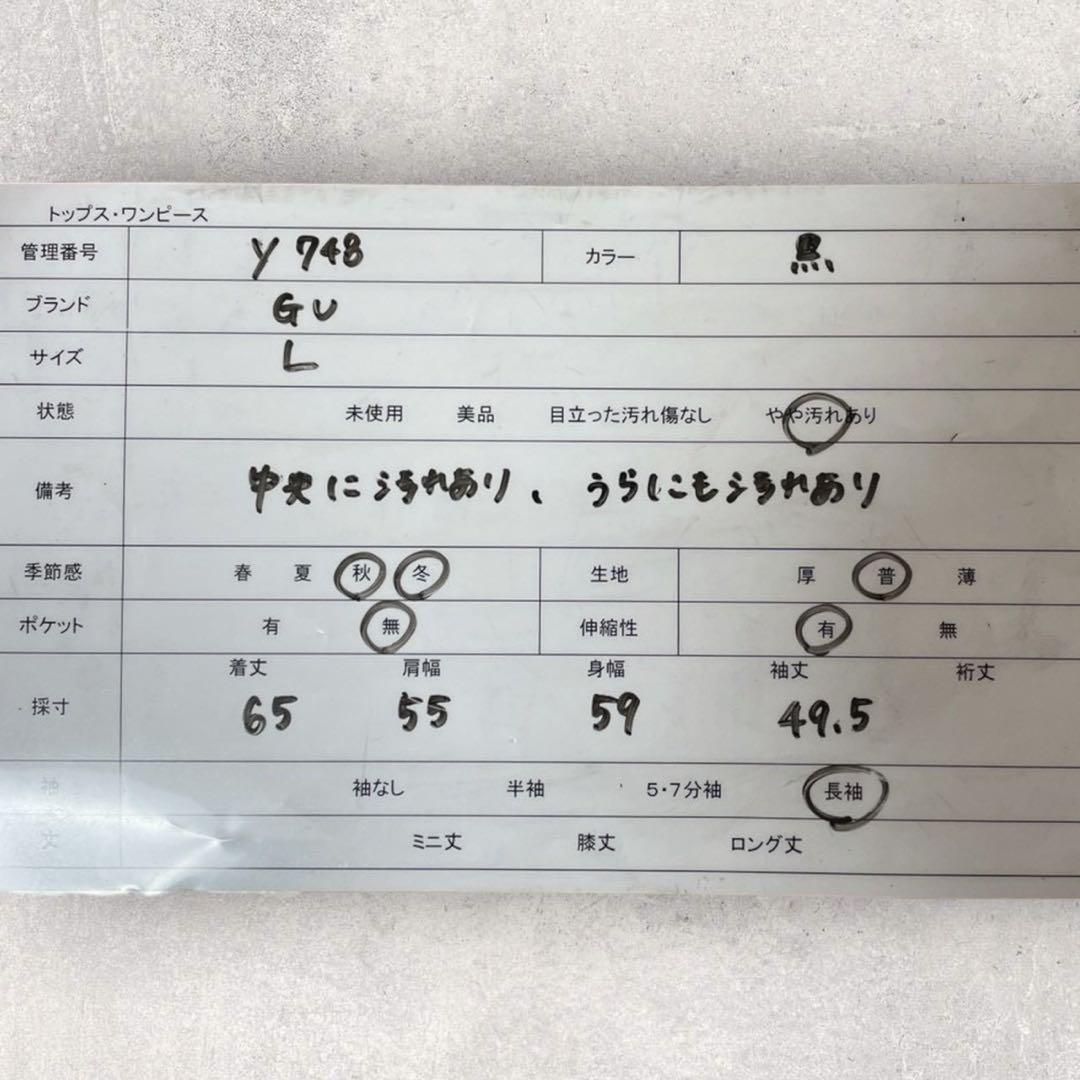 トップス・ワンピース
管理番号 Y748 カラー 黒
ブランド GU
サイズ L
状態 未使用 美品 目立った汚れ傷なし やや汚れあり
備考 中央に汚れあり、うらにも汚れあり
季節感 春 夏 秋 冬 生地 厚 普 薄
ポケット 有 無 伸縮性 有 無
着丈 肩幅 身幅 袖丈 裄丈
採寸 65 55 59 49.5
袖 袖なし 半袖 5・7分袖 長袖
丈 ミニ丈 膝丈 ロング丈